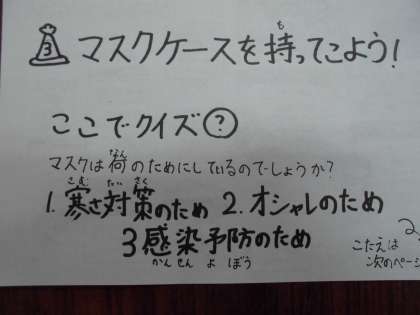 3 マスクケースを持ってこよう!
ここでクイズ?
マスクは荷のためにしているのでしょうか?
1. 寒さ対策のため 2. オシャレのため
3 感染予防のため
こたえは
次のページ
2